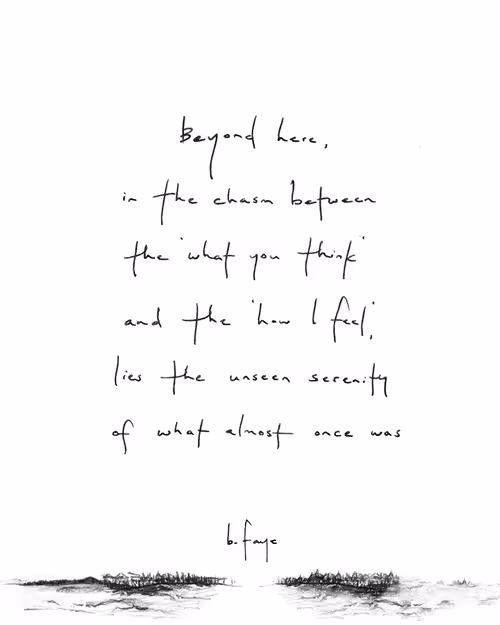 Beyond here,
in the chasm between
the 'what you think'
and the 'how I feel',
lies the unseen serenity
of what almost once was
b. faye